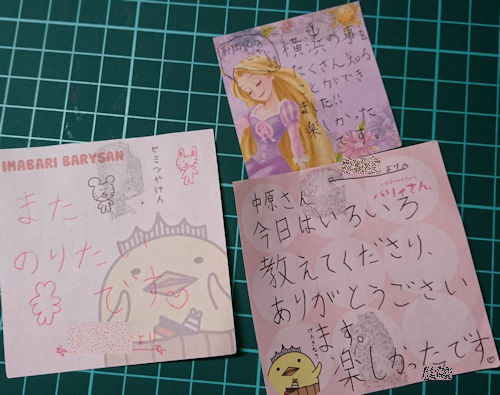 横浜の事を
たくさん知る
ことができ
ました!!
楽しかった
です。
IMABARI BARYSAN
ヒミツやけん
また、
のりたい
です♡
より
より
バリィさん。
中原さん
今日はいろいろ
教えてくださり、
ありがとうござい
ます。
楽しかったです。